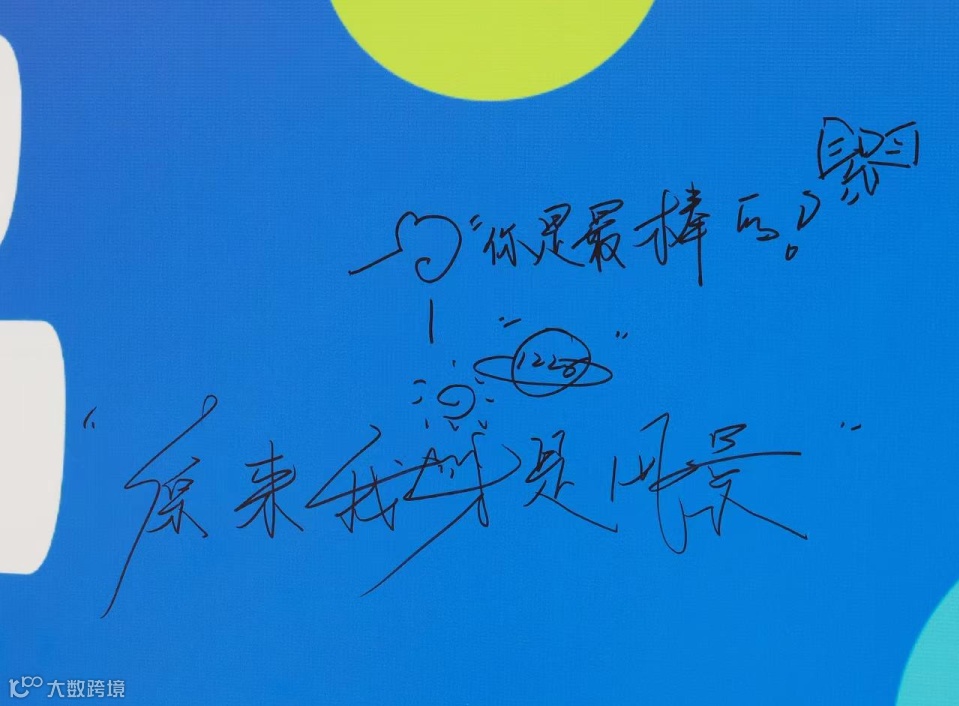 "你是最棒的!
"1226"
"原来我就是风景"
大数跨境